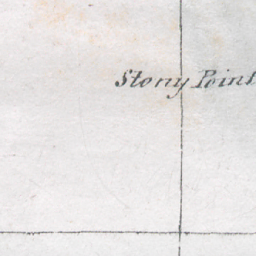 Stony Point